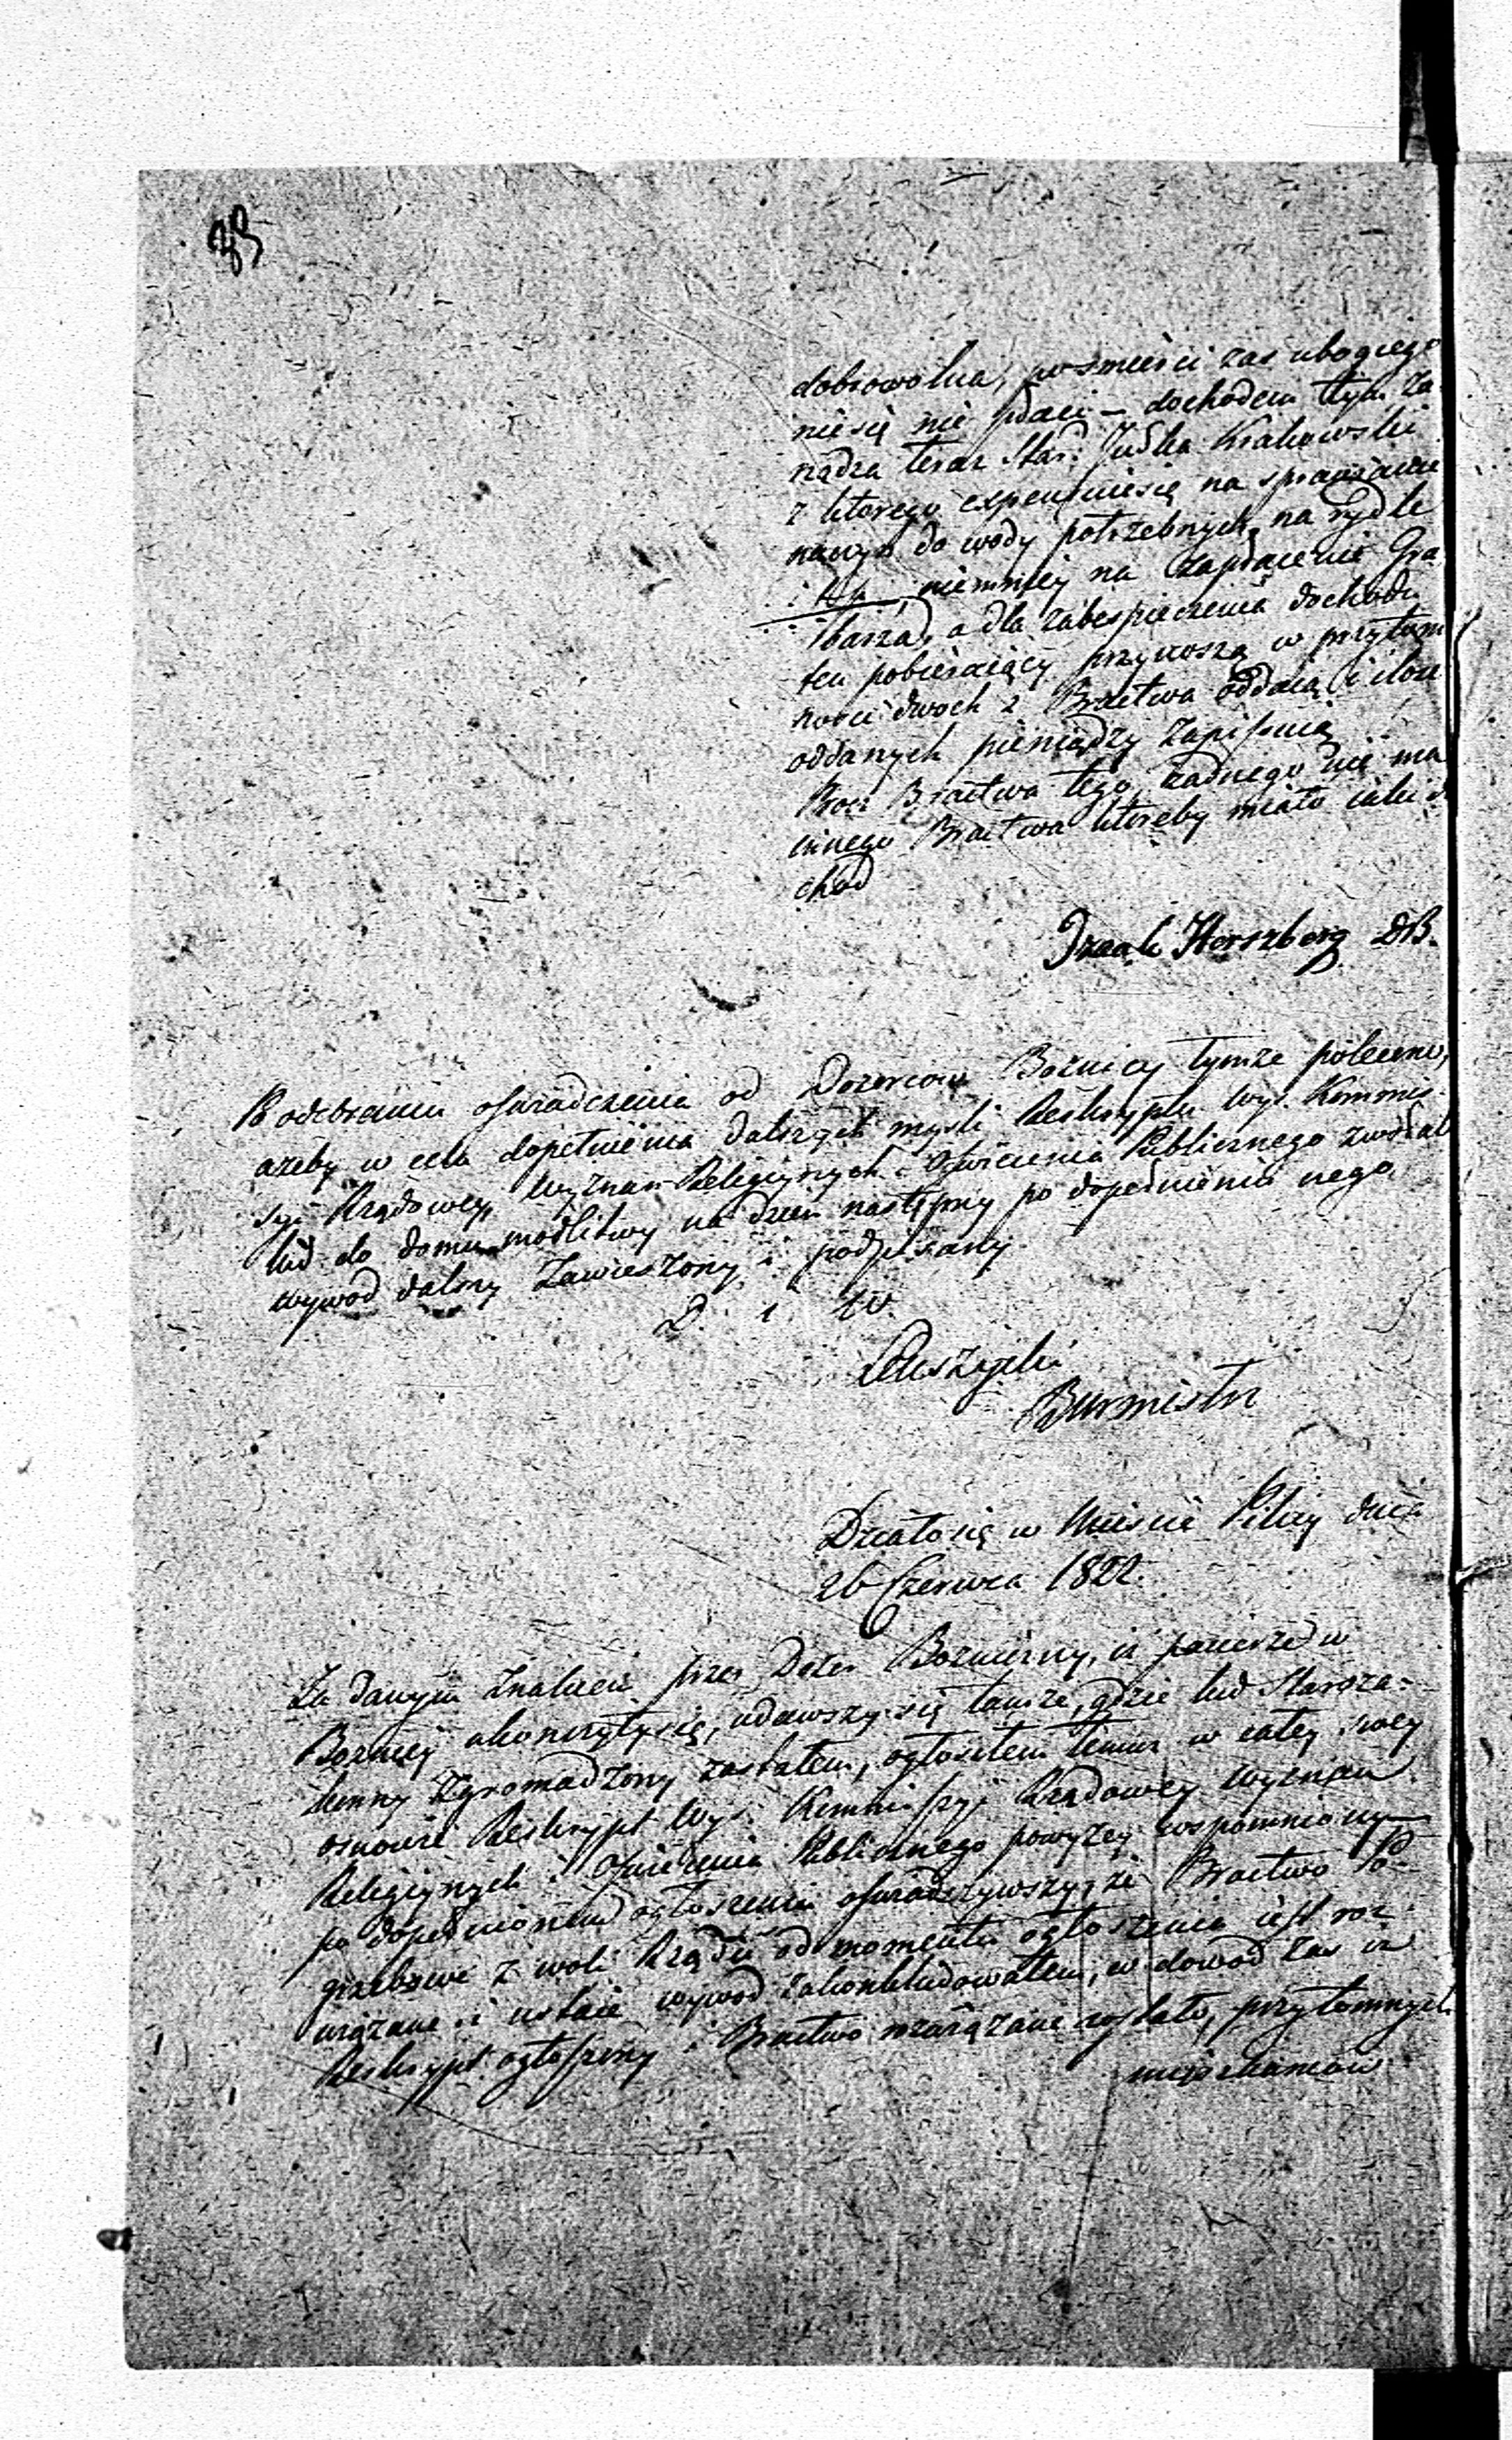 dobrowolna, po smierci zas ubogiego
niesię nie płaci – dochodem tym za
rządza teraz Star: Judka Krakowski
z ktorego expensuiesię na sprawianie
naczyń do wody potrzebnych, na rydle
i t. p., niemniey na zapłacenie Gra
barza, a dla zabespieczenia dochodu
ten pobieraiący przynoszą w przytom
nosci dwoch z Bractwa oddaią i ilosc
oddanych pieniędzy zapisuią
Procz Bractwa tego żadnego nie ma
innego Bractwa ktoreby miało iaki do
chod
Izaak Herszberg DB.
Po odebraniu oswiadczenia od Dozorcow Boznicy tymze polecono,
azeby w celu dopełnienia dalszych mysli Reskryptu Wys. Kommis-
syi Rządowey Wyznań Religiynych i Oświecenia Publicznego zwołali
lud do domu modlitwy na dzień następny po dopełnieniu nego
wywod dalszy zawieszony i podpisany
D. i W.
Burmistrz
Działo się w Mieście Pilicy dnia
26 Czerwca 1822.
Za danym znakiem przez Dozor Bozniczny, iz pacierze w
Boznicy ukonczyły się, udawszy się tamże, gdzie lud Staroza-
konny zgromadzony zastałem, ogłosiłem temuz w całey swey
osnowie Reskrypt Wys. Kommissyi Rządowey Wyznań
Religiynych i Oświecenia Publicznego powyzey wspomniony
po dopełnionem ogłoszeniu oswiadczywszy, ze Bractwo Po-
grzebowe z woli Rządu od momentu ogłoszenia iest roz-
wiązane i ustaie wywod zakonkludowałem, w dowod zas iz
Reskrypt ogłoszony i Bractwo rozwiązane zostało, przytomnych
mieszkancow